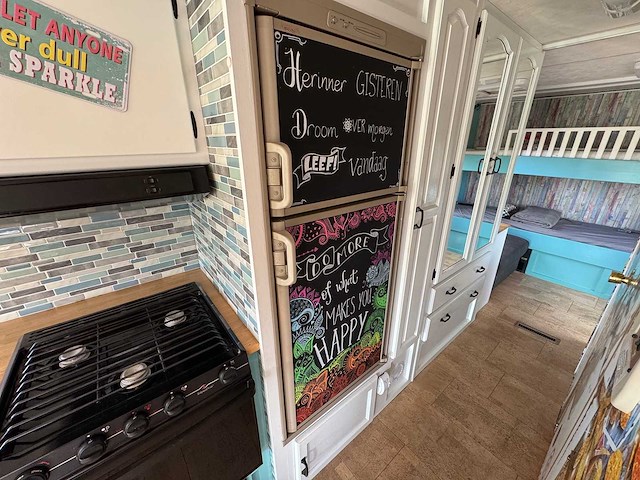 LET ANYONE
er dull
SPARKLE
Herinner GISTEREN
Droom OVER morgen
LEEF! Vandaag
DO MORE
of what
MAKES YOU
HAPPY